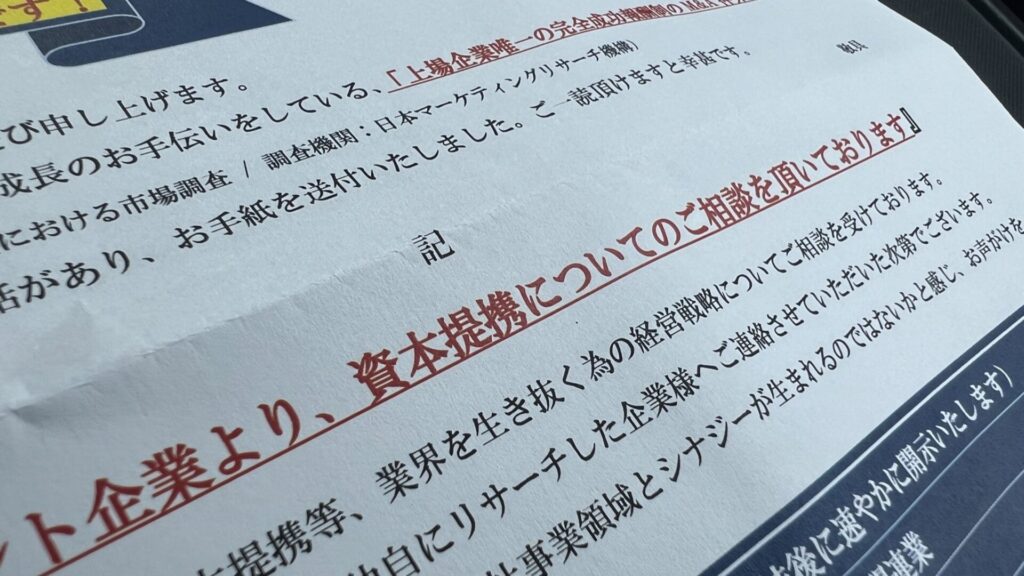 です！
び申し上げます。
成長のお手伝いをしている、「上場企業唯一の完全成功報酬制のM&A
における市場調査 / 調査機関：日本マーケティングリサーチ機構）
話があり、お手紙を送付いたしました。ご一読頂けますと幸甚です。
敬具
記
ント企業より、資本提携についてのご相談を頂いております』
本提携等、業界を生き抜く為の経営戦略についてご相談を受けております。
独自にリサーチした企業様へご連絡させていただいた次第でございます。
事業領域とシナジーが生まれるのではないかと感じ、お声がけを
後に速やかに開示いたします）
関連業